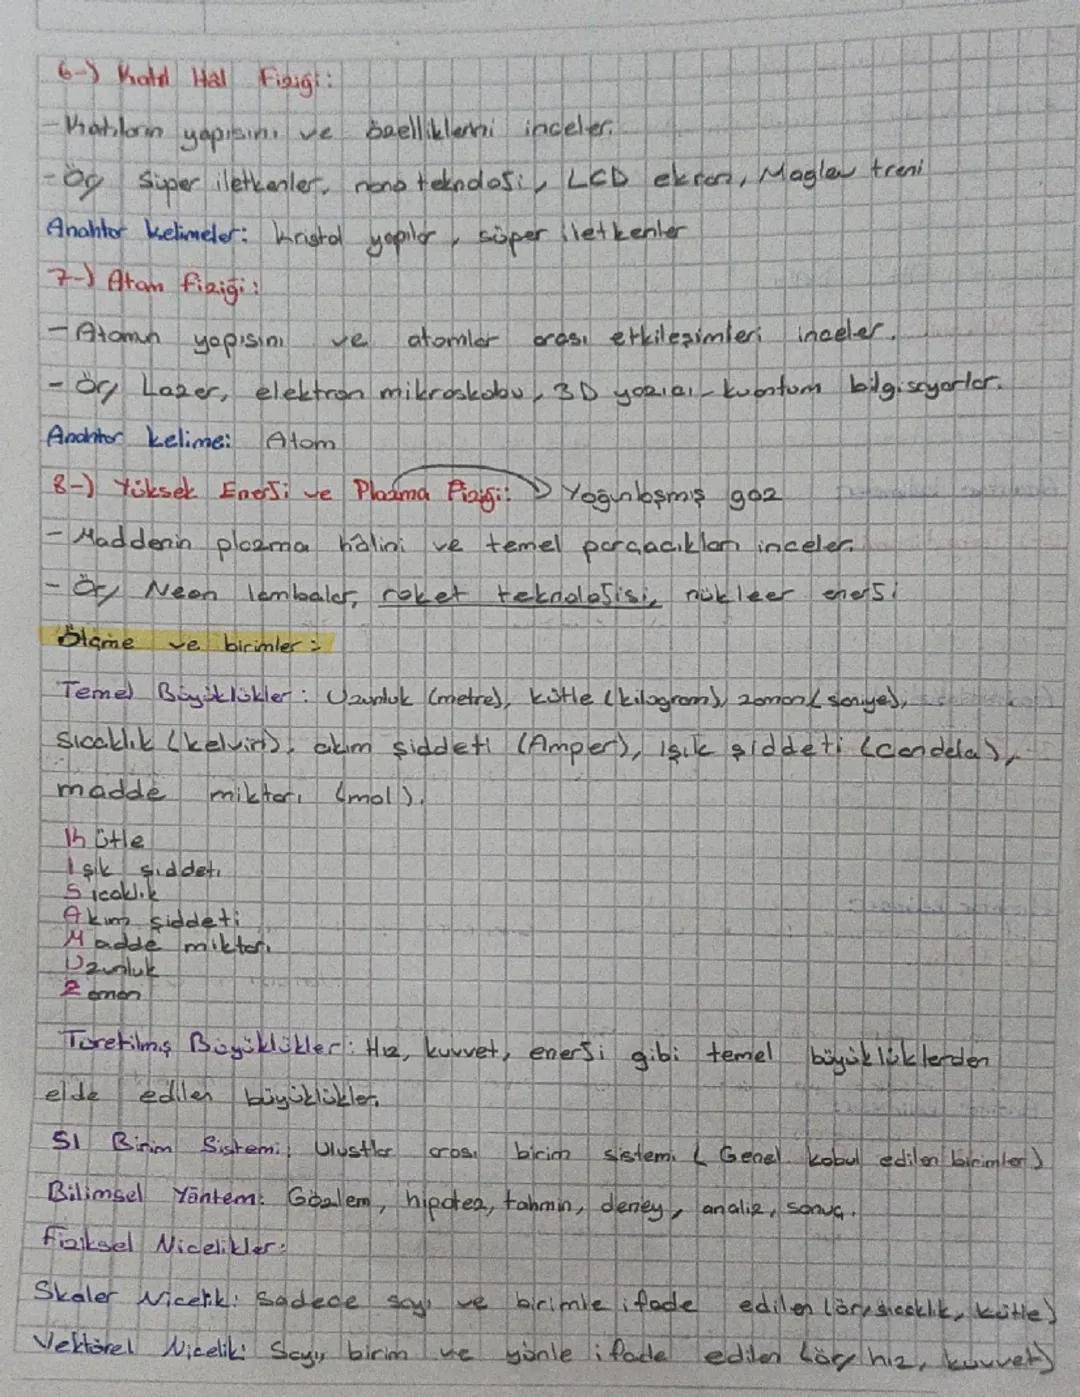 6-) Katıl Hal Fiziği:
- Katıların yapısını ve özelliklerini inceler.
- Ör/ Süper iletkenler, nano teknoloji, LCD ekran, Maglev treni
Anahtar kelimeler: kristal yapılar, süper iletkenler
7-) Atom fiziği:
- Atomun yapısını ve atomlar arası etkileşimleri inceler.
- Ör/ Lazer, elektron mikroskobu, 3D yazıcı, kuantum bilgisayarlar.
Anahtar kelime: Atom
8-) Yüksek Enerji ve Plazma Fiziği: → Yoğunlaşmış gaz
- Maddenin plazma hâlini ve temel parçacıkları inceler.
- Ör/ Neon lambalar, roket teknolojisi, nükleer enerji
Ölçme ve birimler:
Temel Büyüklükler: Uzunluk (metre), kütle (kilogram), zaman (saniye),
sıcaklık (kelvin), akım şiddeti (Amper), ışık şiddeti (candela),
madde miktarı (mol).
Kütle
Işık şiddeti
Sıcaklık
Akım şiddeti
Madde miktarı
Uzunluk
Zaman
Türetilmiş Büyüklükler: Hız, kuvvet, enerji gibi temel büyüklüklerden
elde edilen büyüklükler.
SI Birim Sistemi: Ulustlar arası birim sistemi (Genel kabul edilen birimler)
Bilimsel Yöntem: Gözlem, hipotez, tahmin, deney, analiz, sonuç.
Fiziksel Nicelikler:
Skaler Nicelik: Sadece sayı ve birimle ifade edilen (ör/ sıcaklık, kütle)
Vektörel Nicelik: Sayı, birim ve yönle ifade edilen (ör/ hız, kuvvet)